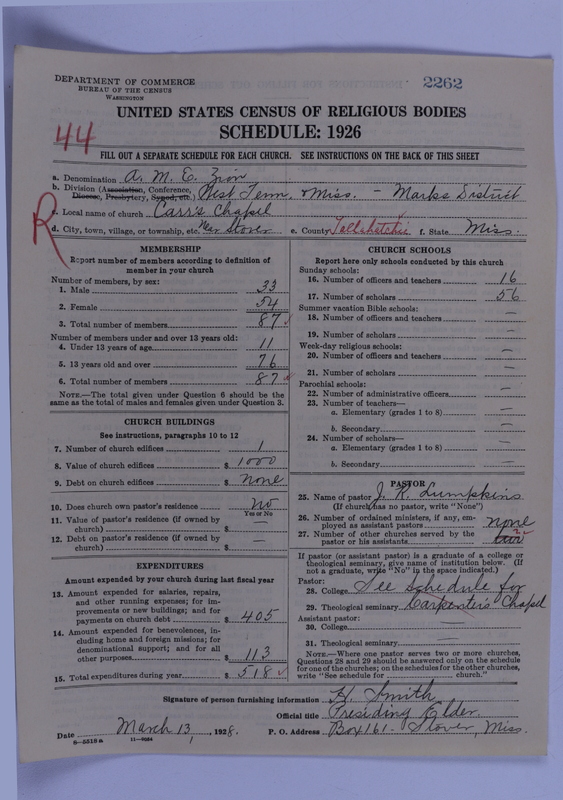 DEPARTMENT OF COMMERCE
BUREAU OF THE CENSUS
WASHINGTON
2262
UNITED STATES CENSUS OF RELIGIOUS BODIES
SCHEDULE: 1926
44
FILL OUT A SEPARATE SCHEDULE FOR EACH CHURCH. SEE INSTRUCTIONS ON THE BACK OF THIS SHEET
a. Denomination A. M. E. Zion
b. Division (Association, Conference, Diocese, Presbytery, Synod, etc.) West Tenn. & Miss. - Marks District
R
c. Local name of church Carr's Chapel
d. City, town, village, or township, etc. Near Stover e. County Tallahatchie f. State Miss.
MEMBERSHIP
Report number of members according to definition of
member in your church
Number of members, by sex:
1. Male 33
2. Female 54
3. Total number of members 87
Number of members under and over 13 years old:
4. Under 13 years of age 11
5. 13 years old and over 76
6. Total number of members 87
NOTE.—The total given under Question 6 should be the
same as the total of males and females given under Question 3.
CHURCH BUILDINGS
See instructions, paragraphs 10 to 12
7. Number of church edifices 1
8. Value of church edifices $ 1000
9. Debt on church edifices $ none
10. Does church own pastor's residence no
Yes or No
11. Value of pastor's residence (if owned by
church) $ —
12. Debt on pastor's residence (if owned by
church) $ —
EXPENDITURES
Amount expended by your church during last fiscal year
13. Amount expended for salaries, repairs,
and other running expenses; for im-
provements or new buildings; and for
payments on church debt $ 405
14. Amount expended for benevolences, in-
cluding home and foreign missions; for
denominational support; and for all
other purposes $ 113
15. Total expenditures during year $ 518
CHURCH SCHOOLS
Report here only schools conducted by this church
Sunday schools:
16. Number of officers and teachers 16
17. Number of scholars 56
Summer vacation Bible schools:
18. Number of officers and teachers —
19. Number of scholars —
Week-day religious schools:
20. Number of officers and teachers —
21. Number of scholars —
Parochial schools:
22. Number of administrative officers —
23. Number of teachers—
a. Elementary (grades 1 to 8) —
b. Secondary —
24. Number of scholars—
a. Elementary (grades 1 to 8) —
b. Secondary —
PASTOR
25. Name of pastor J. R. Lumpkins
(If church has no pastor, write "None")
26. Number of ordained ministers, if any, em-
ployed as assistant pastors none
27. Number of other churches served by the
pastor or his assistants 2
If pastor (or assistant pastor) is a graduate of a college or
theological seminary, give name of institution below. (If
not a graduate, write "No" in the space indicated.)
Pastor:
28. College See schedule for
29. Theological seminary Carpenter's Chapel
Assistant pastor:
30. College
31. Theological seminary
NOTE.—Where one pastor serves two or more churches,
Questions 28 and 29 should be answered only on the schedule
for one of the churches; on the schedules for the other churches,
write "See schedule for church."
Signature of person furnishing information H. Smith
Official title Presiding Elder
Date March 13, 1928. P. O. Address Box 161. Stover, Miss.
8—5518 a